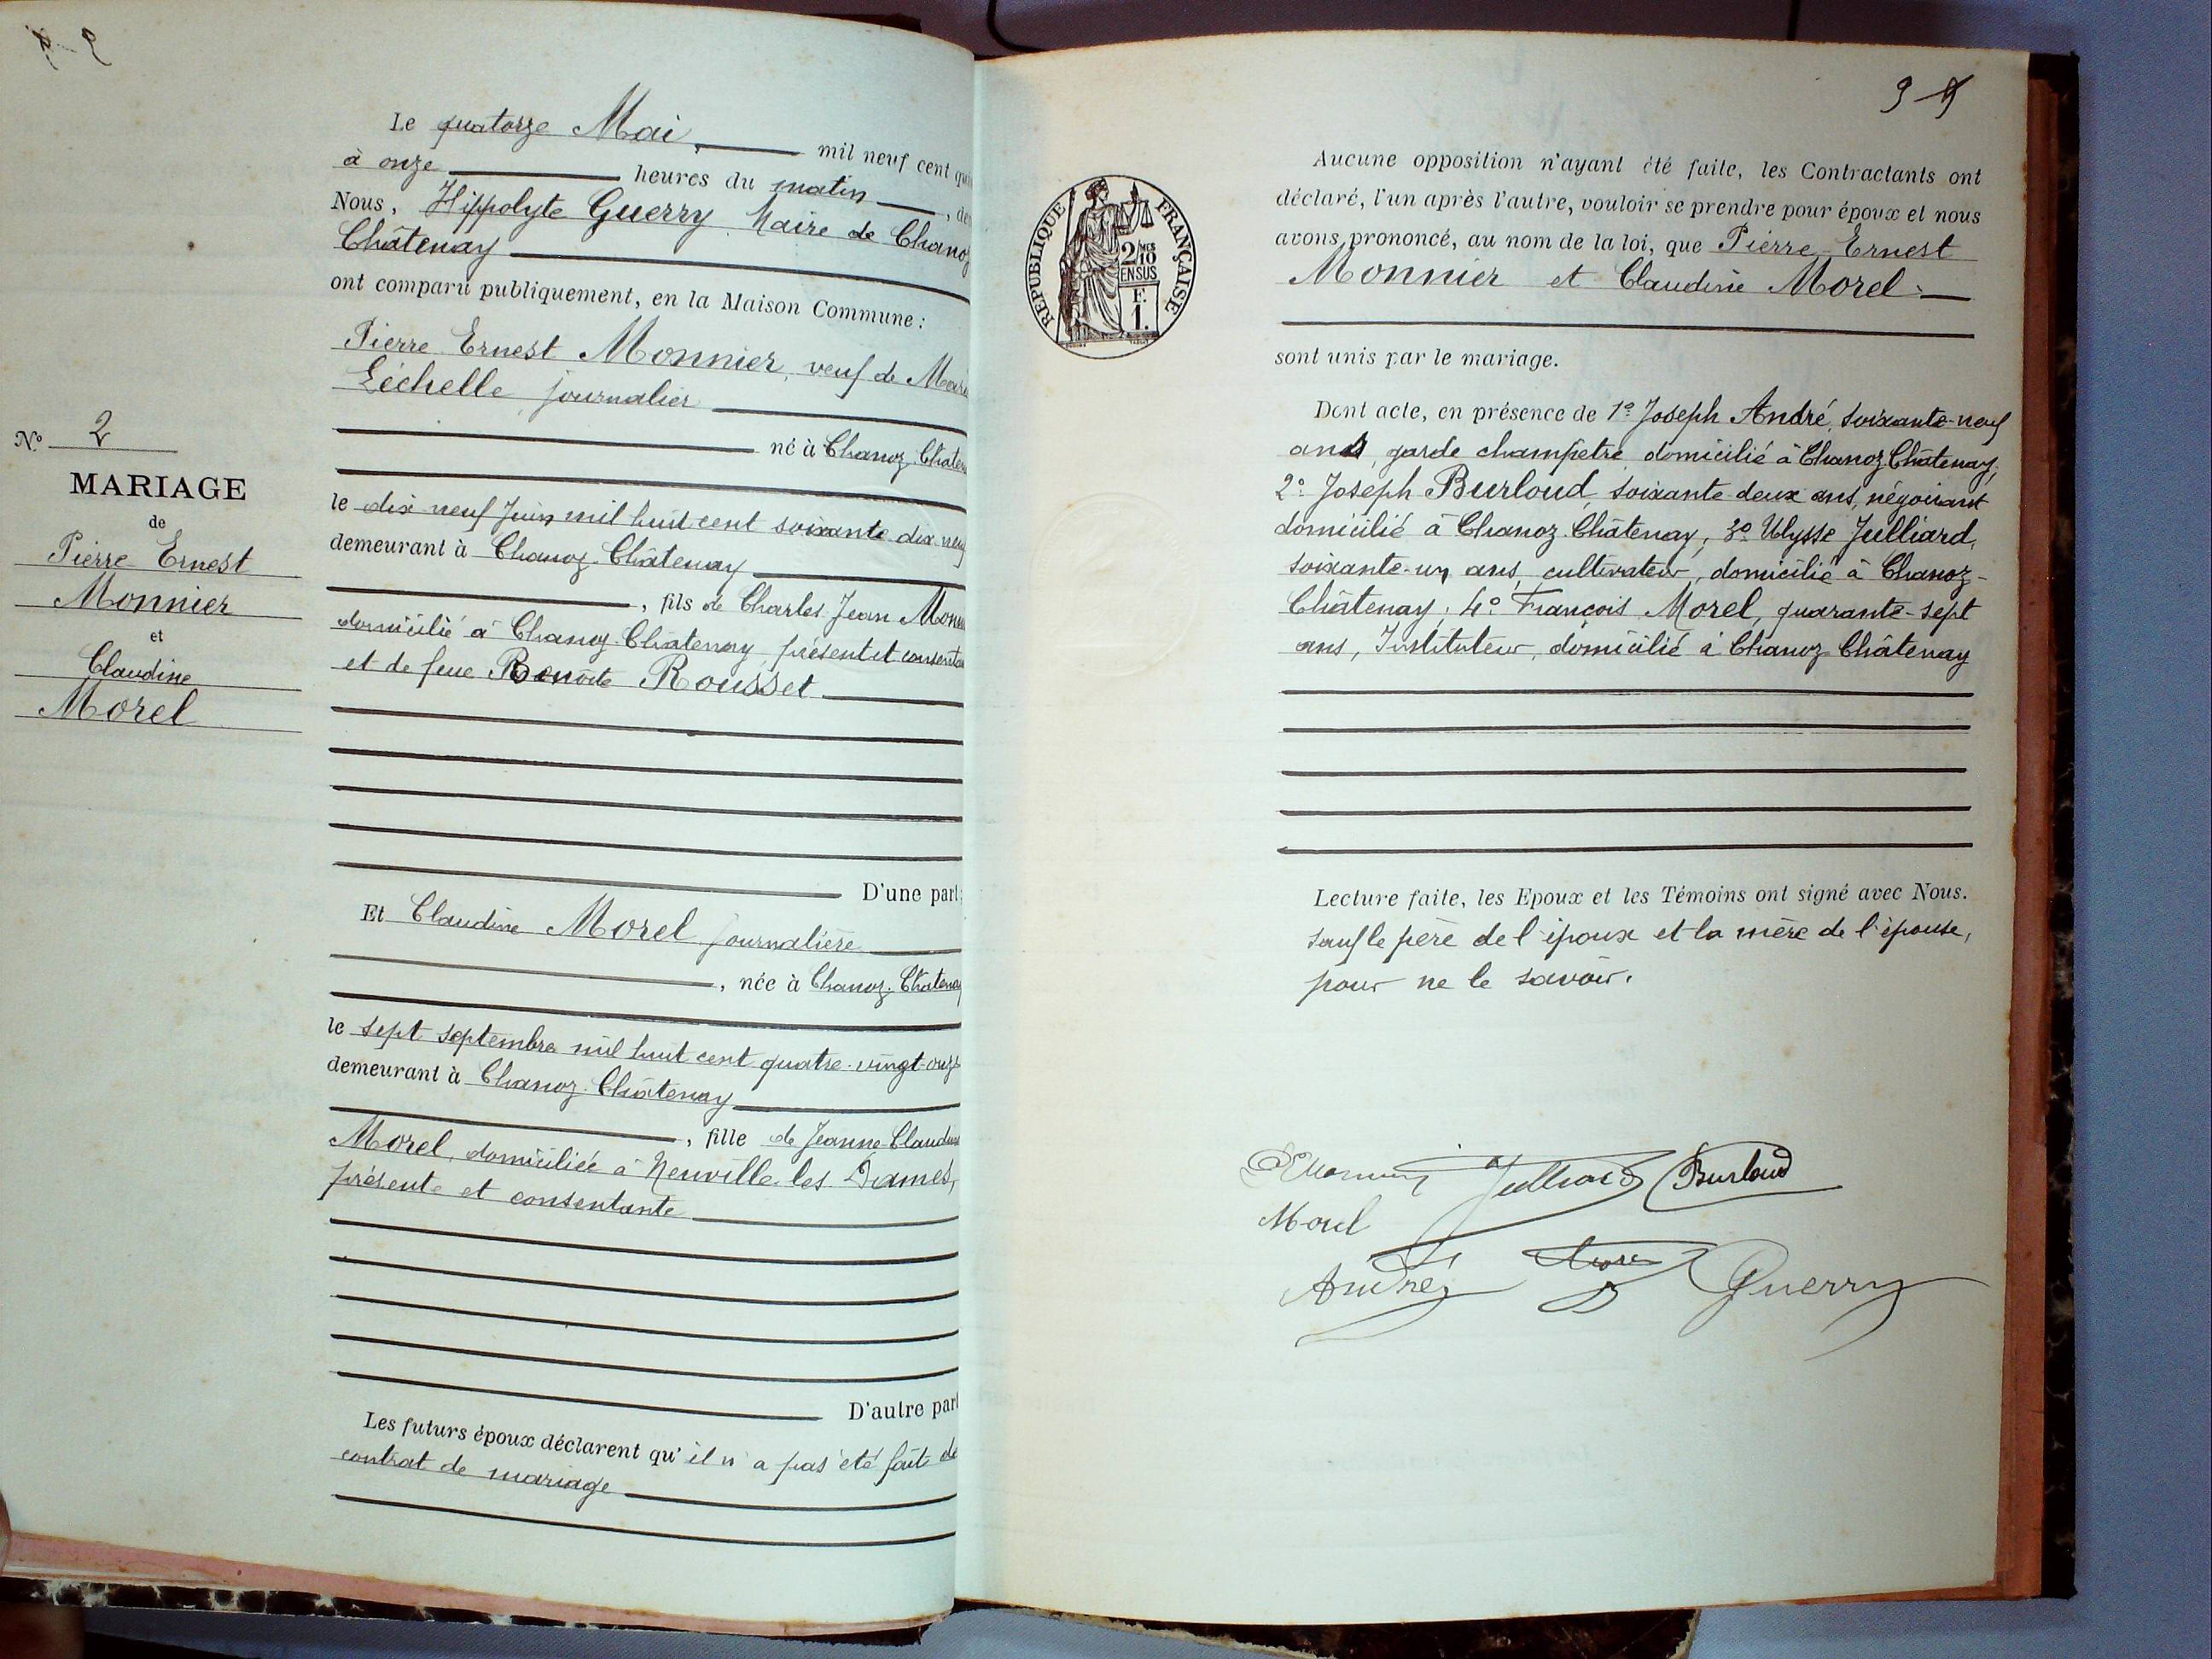 Le quatorze Mai, mil neuf cent
à onze heures du matin,
Nous, Hippolyte Guerry Maire de Chanoz
Châtenay
ont comparu publiquement, en la Maison Commune :
Pierre Ernest Monnier, veuf de Marie
Léchelle journalier
né à Chanoz Châten
le dix neuf Juin mil huit cent soixante dix neuf
demeurant à Chanoz-Châtenay
, fils de Charles Jean Monn
domicilié à Chanoz-Châtenay, présent et consentan
et de feue Benoîte Rousset
D'une part ;
Et Claudine Morel journalière
, née à Chanoz-Châtenay
le sept septembre mil huit cent quatre-vingt-onze
demeurant à Chanoz-Châtenay
, fille de Jeanne-Claudine
Morel, domiciliée à Neuville-les-Dames,
présente et consentante
D'autre part
Les futurs époux déclarent qu'il n'a pas été fait de
contrat de mariage
No 2
MARIAGE
de
Pierre-Ernest
Monnier
et
Claudine
Morel
RÉPUBLIQUE FRANÇAISE
2/10 MES
EN SUS
F.
1.
Aucune opposition n'ayant été faite, les Contractants ont
déclaré, l'un après l'autre, vouloir se prendre pour époux et nous
avons prononcé, au nom de la loi, que Pierre-Ernest
Monnier et Claudine Morel
sont unis par le mariage.
Dont acte, en présence de 1º Joseph André, soixante-neuf
ans, garde champêtre, domicilié à Chanoz Châtenay,
2º Joseph Burloud, soixante-deux ans, négociant
domicilié à Chanoz-Châtenay, 3º Ulysse Julliard,
soixante-un ans, cultivateur, domicilié à Chanoz-
Châtenay, 4º François Morel, quarante-sept
ans, Instituteur, domicilié à Chanoz Châtenay
Lecture faite, les Epoux et les Témoins ont signé avec Nous.
sauf le père de l'époux et la mère de l'épouse,
pour ne le savoir.
Julliard Burloud
Morel
André Guerry